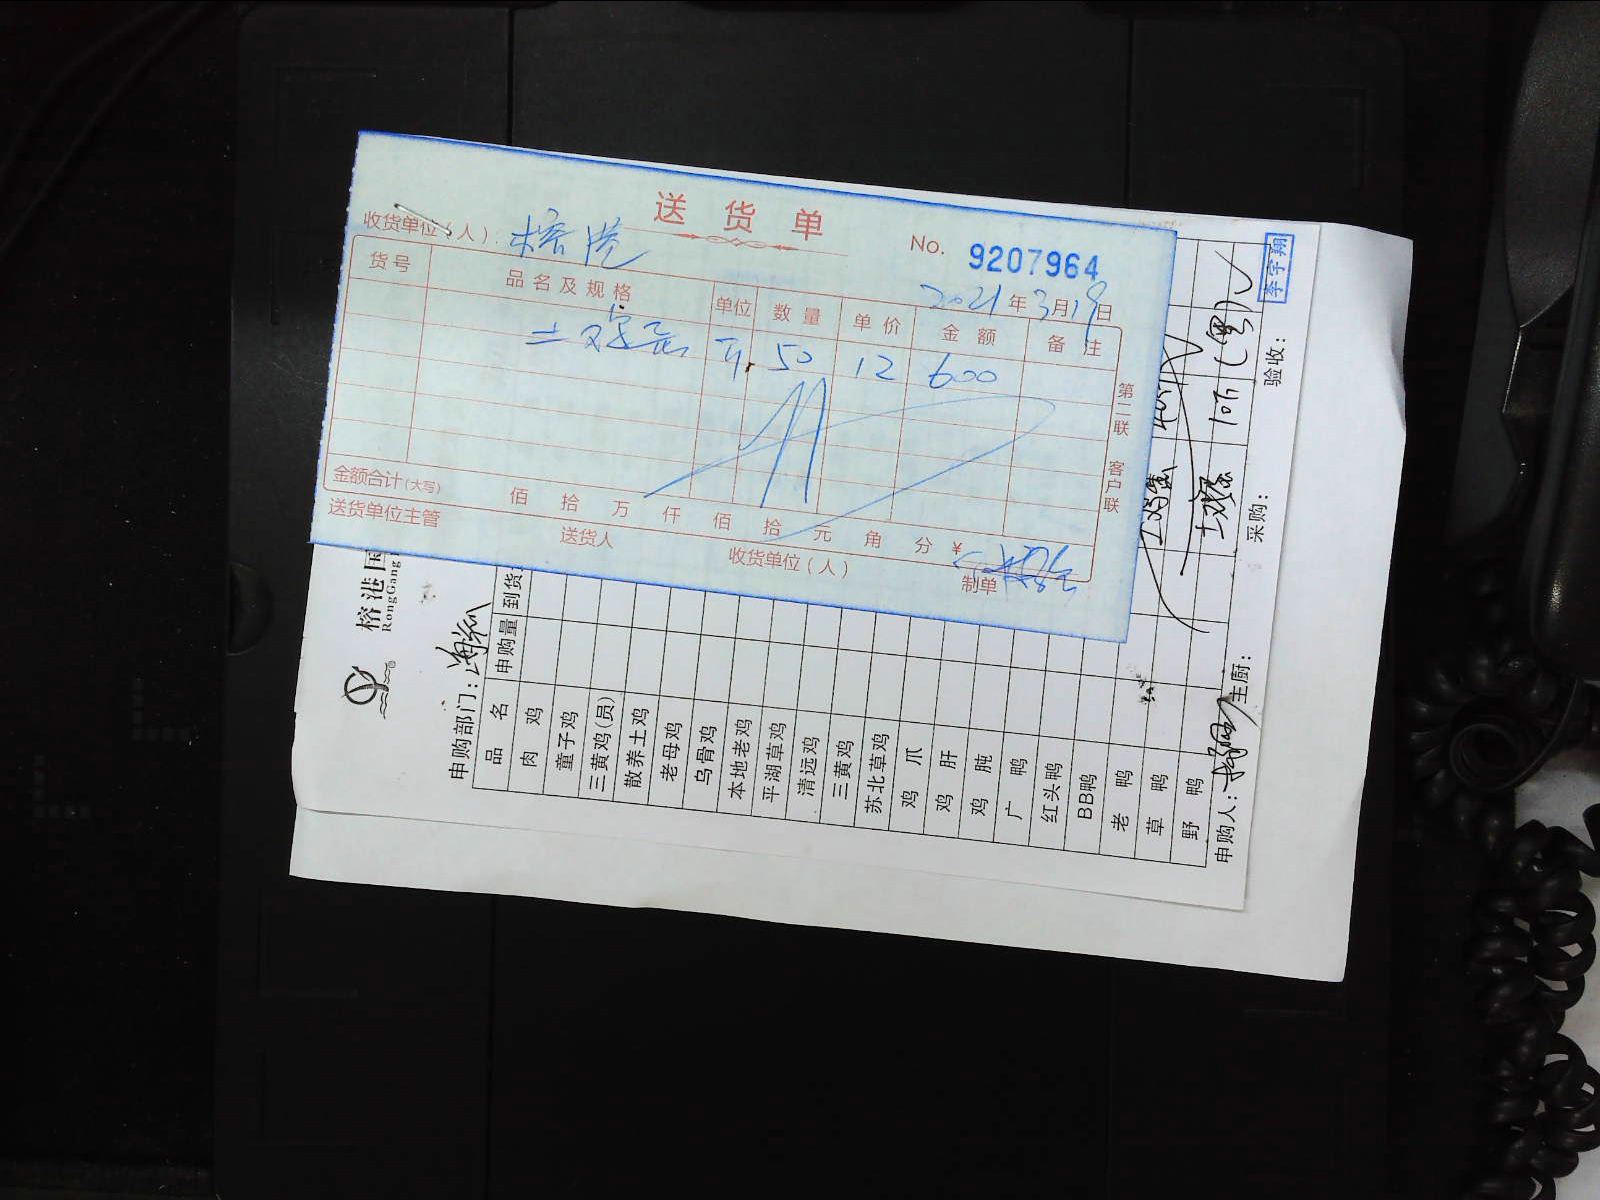 送货单
收货单位(人)：榕港
No. 9207964
2021年3月19日
货号 品名及规格 单位 数量 单价 金额 备注
土鸡蛋 斤 50 12 600
金额合计(大写) 佰 拾 万 仟 佰 拾 元 角 分 ¥
送货单位主管 送货人 收货单位(人) 制单
第二联 客户联
榕港国
RongGang
申购部门：
品名 申购量 到货
肉鸡
童子鸡
三黄鸡(员)
散养土鸡
老母鸡
乌骨鸡
本地老鸡
平湖草鸡
清远鸡
三黄鸡
苏北草鸡
鸡爪
鸡肝
鸡肫
广鸭
红头鸭
BB鸭
老鸭
草鸭
野鸭
申购人： 主厨： 采购： 验收：
李宇翔